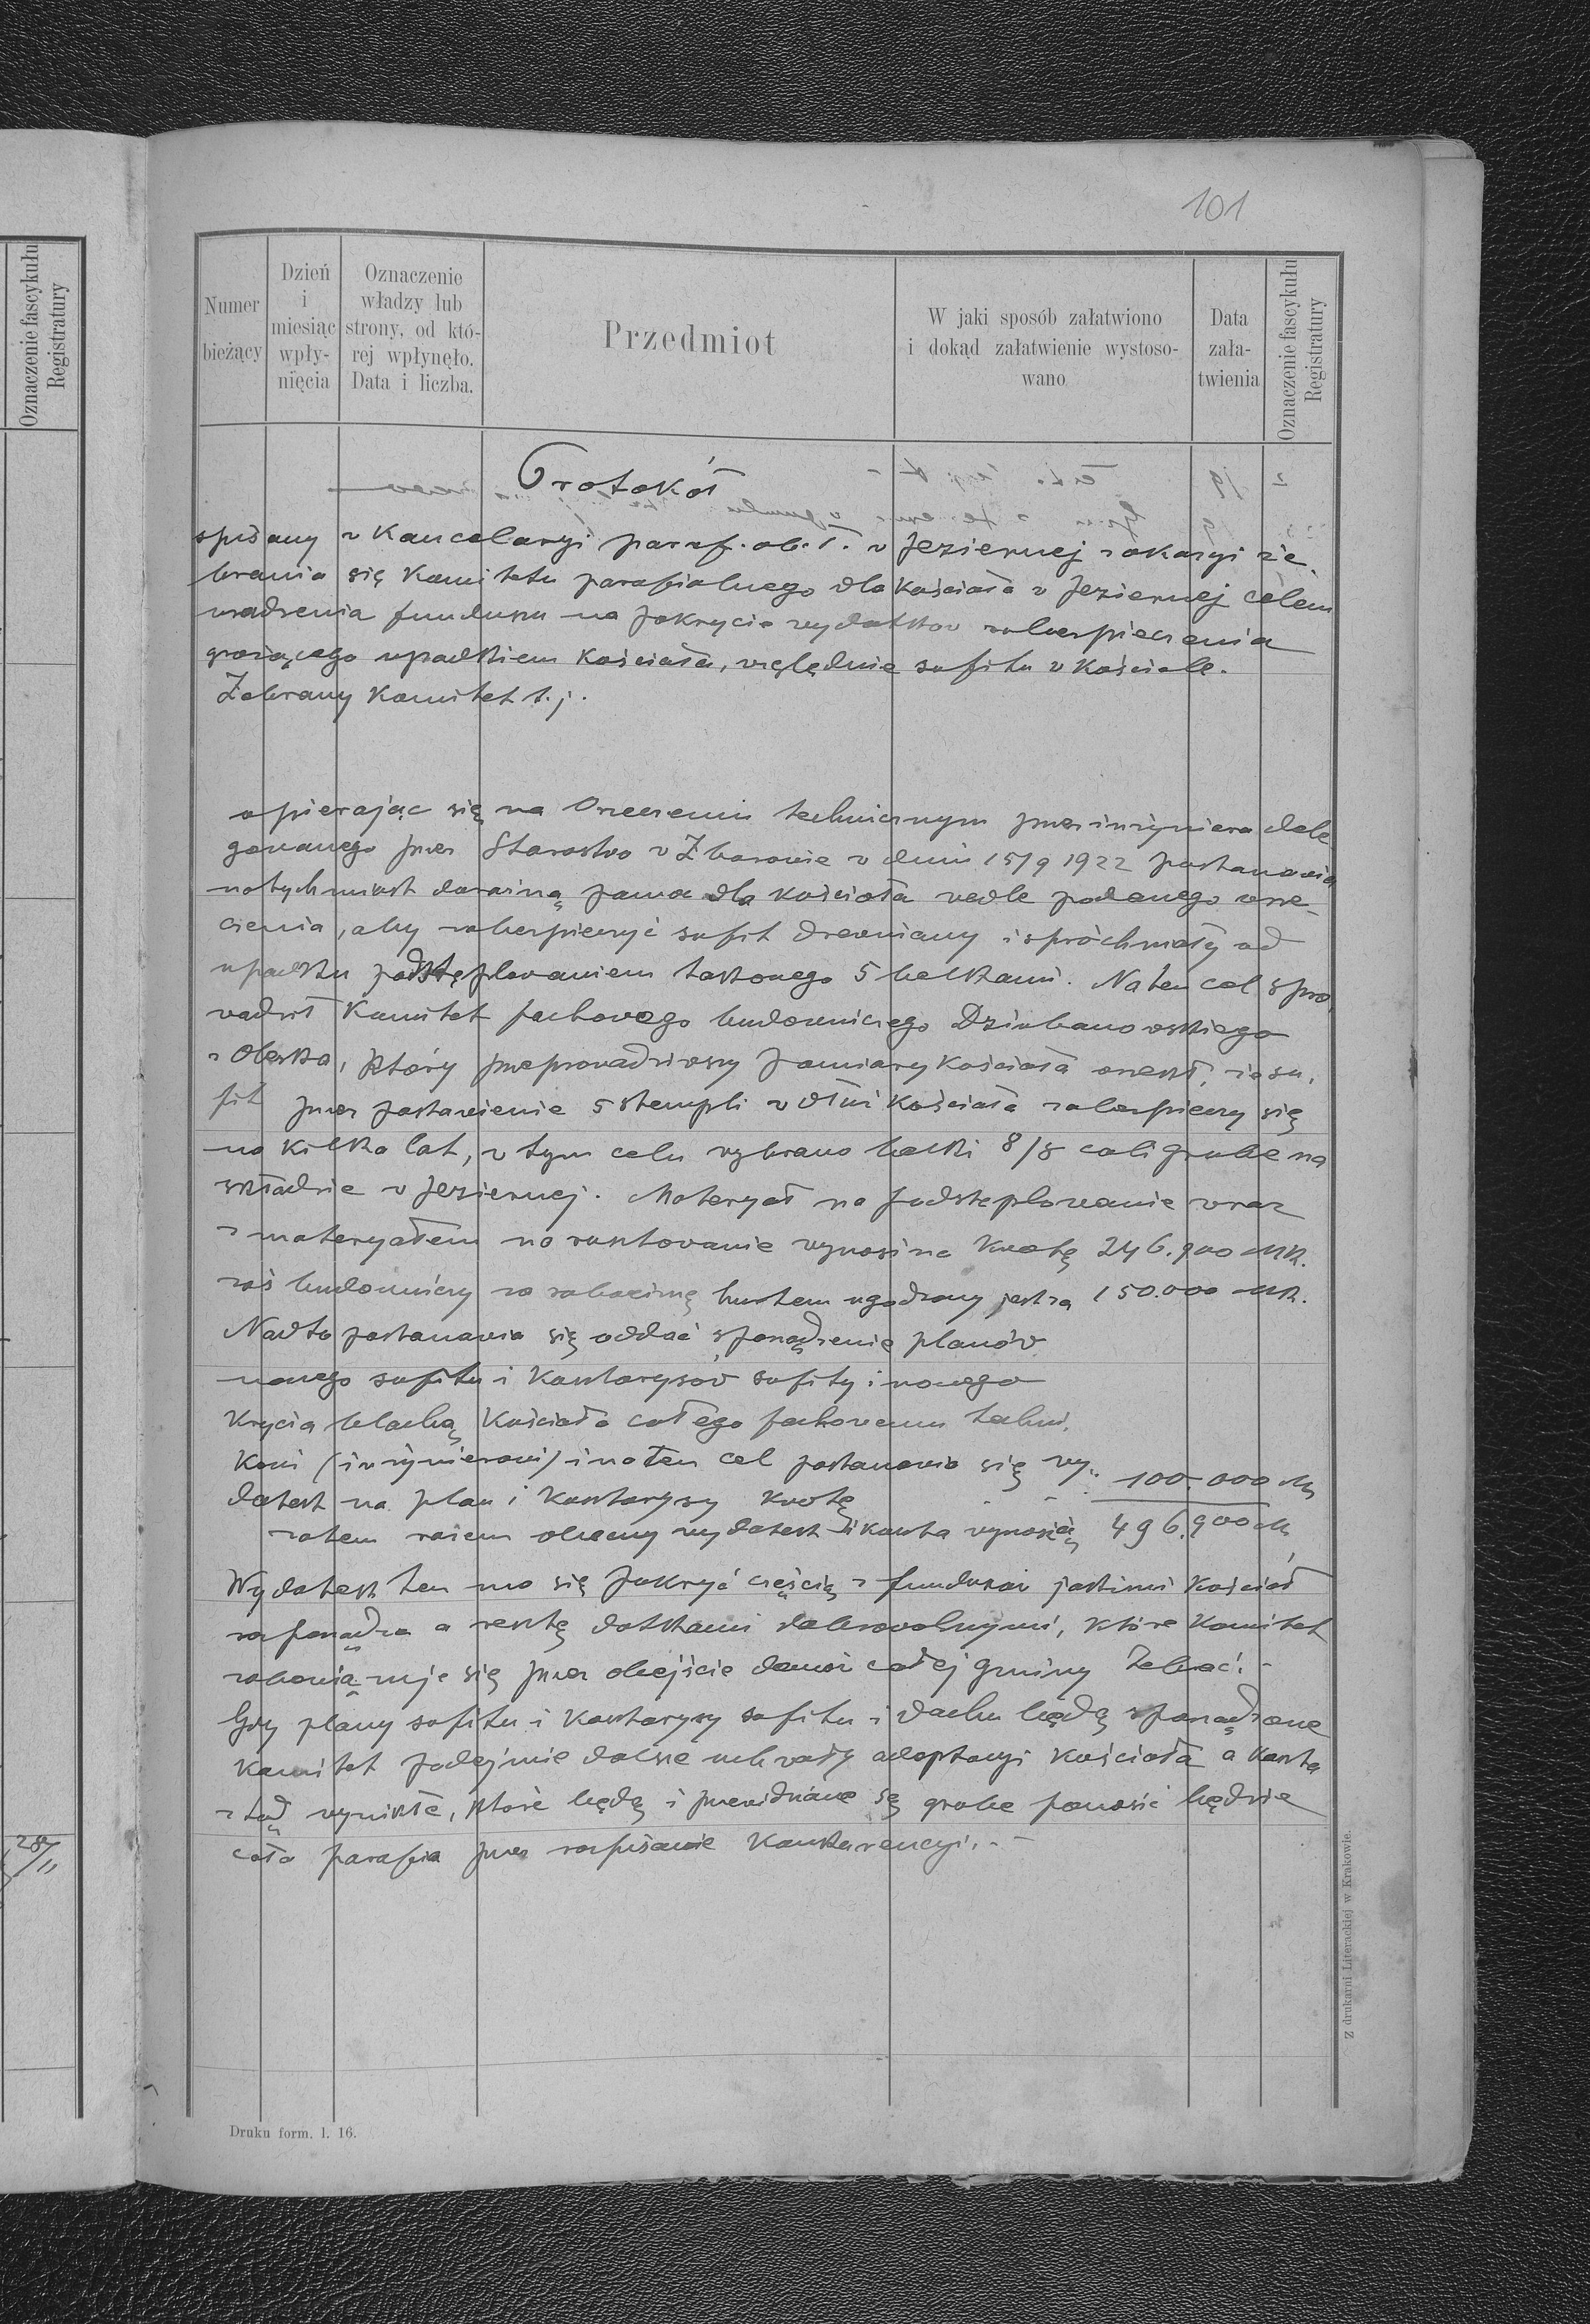 101
Oznaczenie fascykułu
Registratury
Numer
bieżący
Dzień
i
miesiąc
wpły-
nięcia
Oznaczenie
władzy lub
strony, od któ-
rej wpłynęło.
Data i liczba.
Przedmiot
W jaki sposób załatwiono
i dokąd załatwienie wystoso-
wano
Data
zała-
twienia
Oznaczenie fascykułu
Registratury
Protokół
spisany w Kancelaryi paraf. ob. ł. w Jeziernej z okazyi ze-
brania się Komitetu parafialnego dla Kościoła w Jeziernej celem
uradzenia funduszu na pokrycie wydatków zabezpieczenia
grożącego upadkiem Kościoła, względnie sufitu w Kościele.
Zebrany Komitet t. j.
opierając się na Orzeczeniu technicznym przez inżyniera dele
gowanego przez Starostwo w Zborowie w dniu 15/9 1922 postanawia
natychmiast doraźną pomoc dla Kościoła wedle podanego orze-
czenia, aby zabezpieczyć sufit drewniany i spróchniały od
upadku podstęplowaniem takowego 5 belkami. Na ten cel spro-
wadził Komitet fachowego budowniczego Dziubanowskiego
z Oleska, który przeprowadziwszy pomiary Kościoła orzekł, że su-
fit przez postawienie 5 stempli w dłuż Kościoła zabezpieczy się
na kilka lat, w tym celu wybrano belki 8/8 cali grube na
składzie w Jeziernej. Materyał na podsteplowanie wraz
z materyałem na rusztowanie wynosi na Kwotę 246.900 MK.
zaś budowniczy za robociznę hurtem ugodzony jest za 150.000 MK.
Nadto postanawia się oddać sporządzenie planów
nowego sufitu i Kosztorysów sufity i nowego
Krycia blachą Kościoła całego fachowemu techni-
kowi (inżynierowi) i na ten cel postanawia się wy-
datek na plan i Kosztorysy kwotę - - - 100.000 M
zatem razem obecny wydatek i koszta wynoszą 496.900 M
Wydatek ten ma się pokryć częścią z funduszów jakimi Kościół
rozporządza a resztę datkami dobrowolnymi, które Komitet
zobowiązuje się przez obejście domów całej gminy zebrać. -
Gdy plany sufitu i Kosztorysy sufitu i dachu będą sporządzone
Komitet podejmie dalsze uchwały adaptacyi Kościoła a koszta
ztąd wynikłe, które będą i przewidziane są grube ponosić będzie
cała parafia przez rozpisanie Konkurencyi. -
28/11
Druku form. l. 16.
Z drukarni Literackiej w Krakowie.